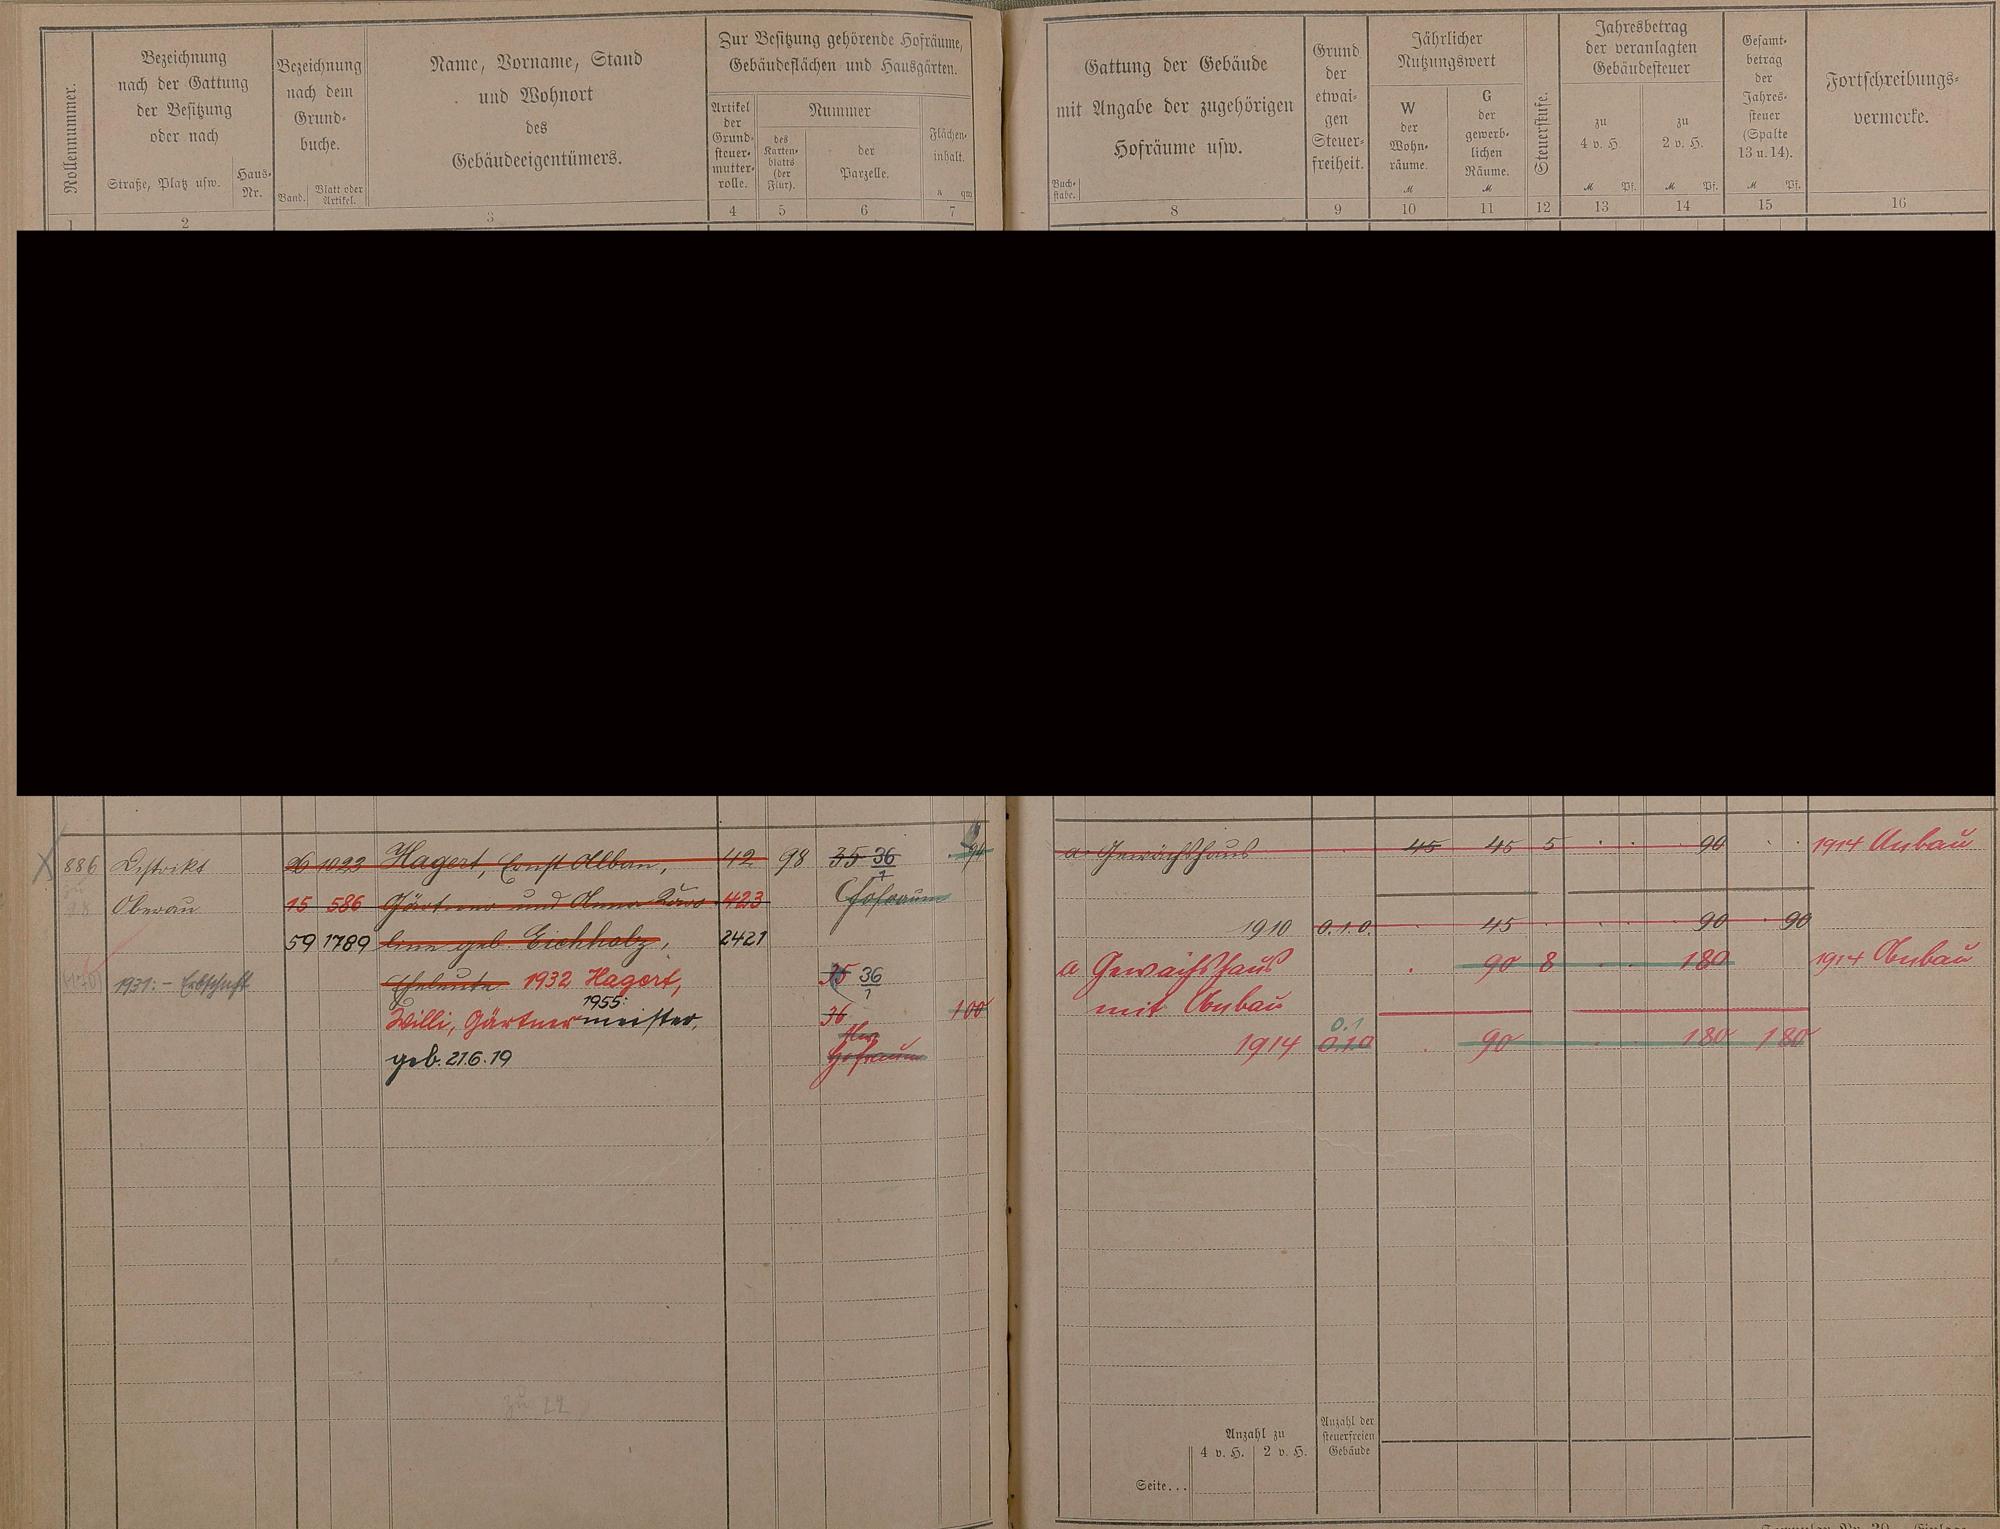 Rollennummer.
Bezeichnung
nach der Gattung
der Besitzung
oder nach
Straße, Platz usw.
Haus-
Nr.
Bezeichnung
nach dem
Grund-
buche.
Band.
Blatt oder
Artikel.
Name, Vorname, Stand
und Wohnort
des
Gebäudeeigentümers.
Zur Besitzung gehörende Hofräume,
Gebäudeflächen und Hausgärten.
Artikel
der
Grund-
steuer-
mutter-
rolle.
Nummer
des
Karten-
blatts
(der
Flur).
der
Parzelle.
Flächen-
inhalt.
a qm
1 2 3 4 5 6 7
Gattung der Gebäude
mit Angabe der zugehörigen
Hofräume usw.
Buch-
stabe.
Grund
der
etwai-
gen
Steuer-
freiheit.
Jährlicher
Nutzungswert
W
der
Wohn-
räume.
M
G
der
gewerb-
lichen
Räume.
M
Steuerstufe.
Jahresbetrag
der veranlagten
Gebäudesteuer
zu
4 v. H.
M Pf.
zu
2 v. H.
M Pf.
Gesamt-
betrag
der
Jahres-
steuer
(Spalte
13 u. 14).
M Pf.
Fortschreibungs-
vermerke.
8 9 10 11 12 13 14 15 16
886 Distrikt 26 1023 Hagert, Ernst Alban, 42 98 35 36/1 94
Oberau 15 586 Gärtner und Anna Karo- 423 Hofraum
59 1789 line geb. Eichholz, 2421
1931: – Erbschaft Eheleute 1932 Hagert, 35 36/1
1955:
Willi, Gärtnermeister, 36 100
geb. 21.6.19 Hofraum
zu 22
a Gewächshaus 45 45 5 90 1914 Anbau
1910 0.1.0. 45 90 90
a Gewächshaus 90 8 180 1914 Anbau
mit Anbau
0.1
1914 0.1.0 90 180 180
Anzahl zu
4 v. H. 2 v. H.
Anzahl der
steuerfreien
Gebäude
Seite...